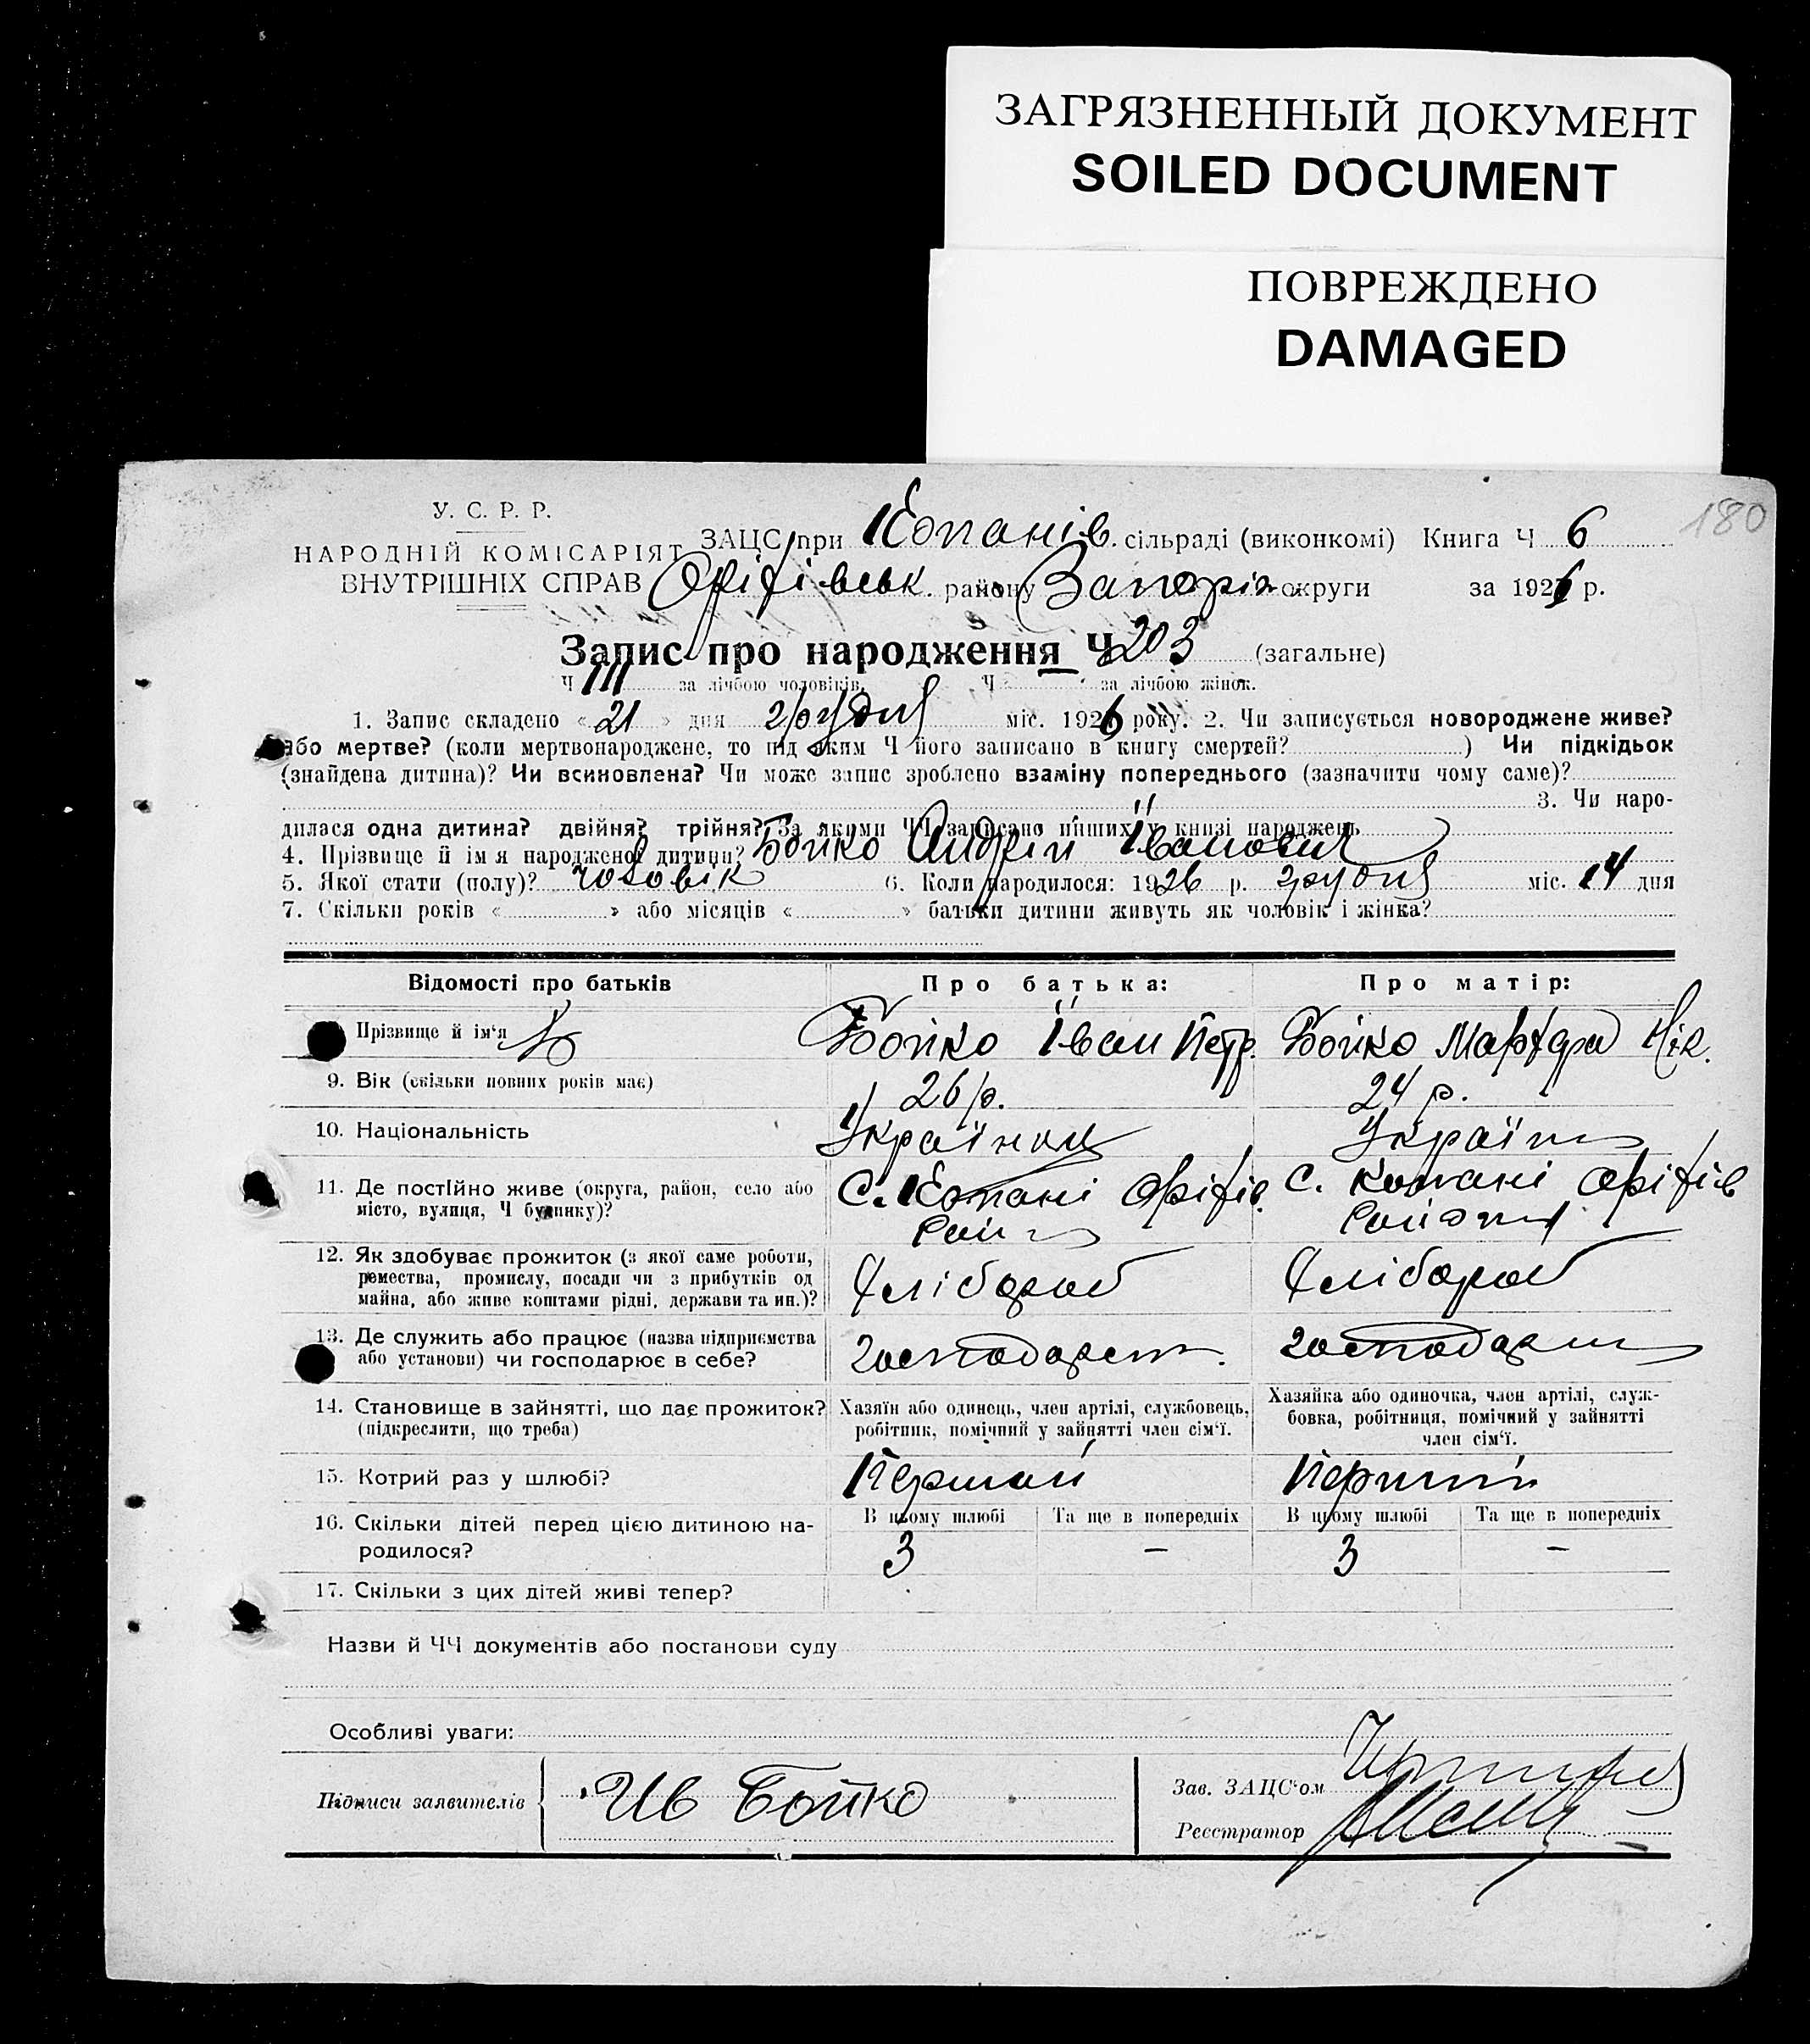 ЗАГРЯЗНЕННЫЙ ДОКУМЕНТ
SOILED DOCUMENT
ПОВРЕЖДЕНО
DAMAGED
180
У. С. Р. Р.
НАРОДНІЙ КОМІСАРІЯТ
ВНУТРІШНІХ СПРАВ
ЗАЦС при Копанів. сільраді (виконкомі) Книга Ч 6
Оріхівськ. району Запоріз. округи за 1926 р.
Запис про народження Ч 203 (загальне)
Ч 111 за лічбою чоловіків. Ч за лічбою жінок.
1. Запис складено « 21 » дня грудня міс. 1926 року. 2. Чи записується новороджене живе?
або мертве? (коли мертвонароджене, то під яким Ч його записано в книгу смертей? ) Чи підкідьок
(знайдена дитина)? Чи всиновлена? Чи може запис зроблено взаміну попереднього (зазначити чому саме)?
3. Чи наро-
дилася одна дитина? двійня? трійня? За якими ЧЧ записано инших у книзі народжень
4. Прізвище й ім'я народженої дитини? Бойко Андрій Іванович
5. Якої стати (полу)? чоловік 6. Коли народилося: 1926 р. грудня міс. 14 дня
7. Скільки років « » або місяців « » батьки дитини живуть як чоловік і жінка?
Відомості про батьків Про батька: Про матір:
Прізвище й ім'я Бойко Іван Петр. Бойко Марфа Нік.
9. Вік (скільки повних років має) 26 р. 24 р.
10. Національність Українец Україн
11. Де постійно живе (округа, район, село або С. Копані Оріхів. С. Копані Оріхів
місто, вулиця, Ч будинку)? району
12. Як здобуває прожиток (з якої саме роботи, Хлібороб Хлібороб
ремества, промислу, посади чи з прибутків од
майна, або живе коштами рідні, держави та ин.)?
13. Де служить або працює (назва підприємства господарст. господарст
або установи) чи господарює в себе?
14. Становище в зайнятті, що дає прожиток? Хазяїн або одинець, член артілі, службовець, Хазяйка або одиночка, член артілі, служ-
(підкреслити, що треба) робітник, помічний у зайнятті член сім'ї. бовка, робітниця, помічний у зайнятті
член сім'ї.
15. Котрий раз у шлюбі? Перший Перший
16. Скільки дітей перед цією дитиною на- В цьому шлюбі Та ще в попередніх В цьому шлюбі Та ще в попередніх
родилося? 3 – 3 –
17. Скільки з цих дітей живі тепер?
Назви й ЧЧ документів або постанови суду
Особливі уваги:
Підписи заявителів Ив Бойко Зав. ЗАЦС'ом
Реєстратор